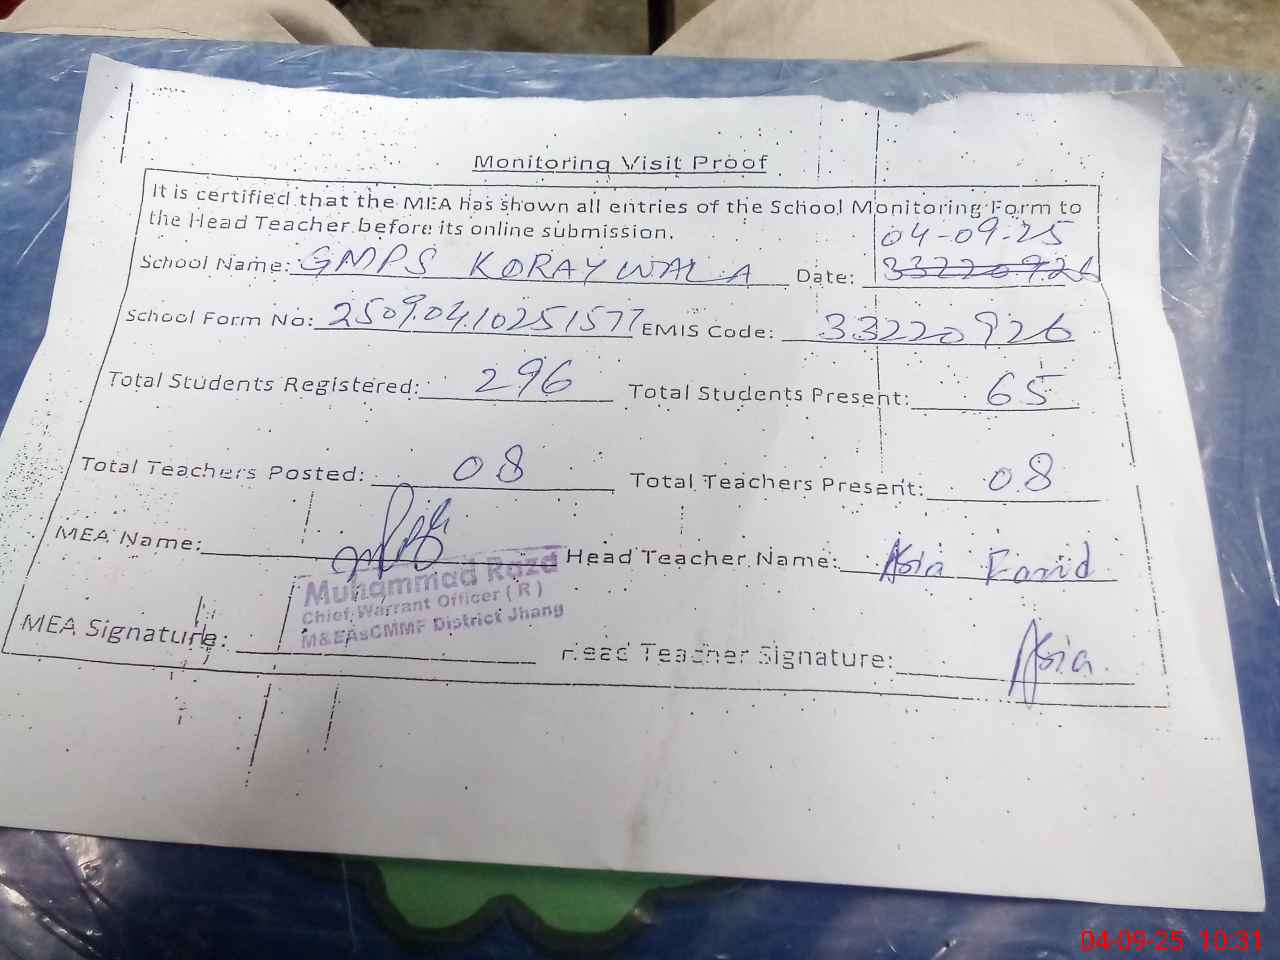 Monitoring Visit Proof
It is certified that the MEA has shown all entries of the School Monitoring Form to
the Head Teacher before its online submission.
04-09-25
School Name: GMPS KORAYWALA Date: 33220926
School Form No: 25090410251577 EMIS Code: 33220926
Total Students Registered: 296 Total Students Present: 65
Total Teachers Posted: 08 Total Teachers Present: 08
MEA Name: Head Teacher Name: Asia Farid
Muhammad Raza
Chief Warrant Officer ( R )
M&EAsCMMF District Jhang
MEA Signature: Head Teacher Signature: Asia
04-09-25 10:31